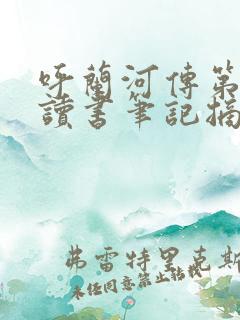 呼蘭河傳第
讀書筆記摘
弗雷特里克斯
未经同意禁止转载